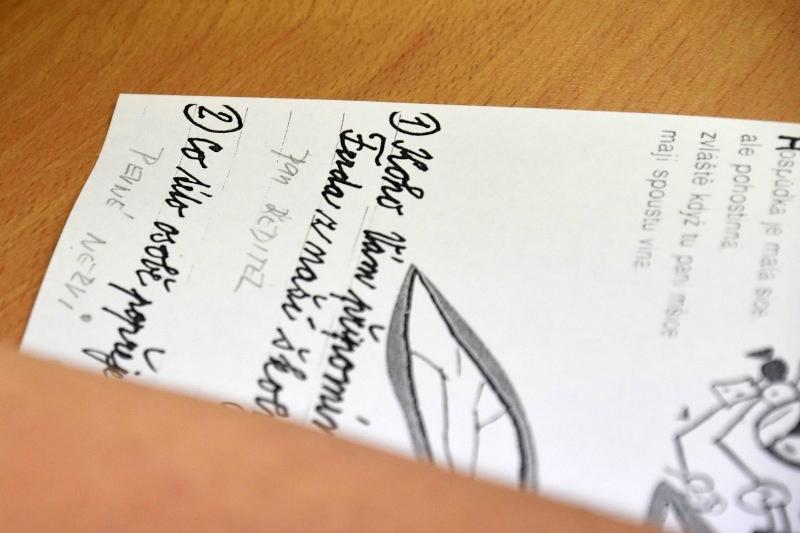 Hospůdka je malá sice,
ale pohostinná
zvláště když tu páni mšice
mají spoustu vína.
1) Koho Vám připomín
Ferda z naší škol
PAN ŘEDITEL
2) Co osobě popřeje
PEVNÉ NERVI